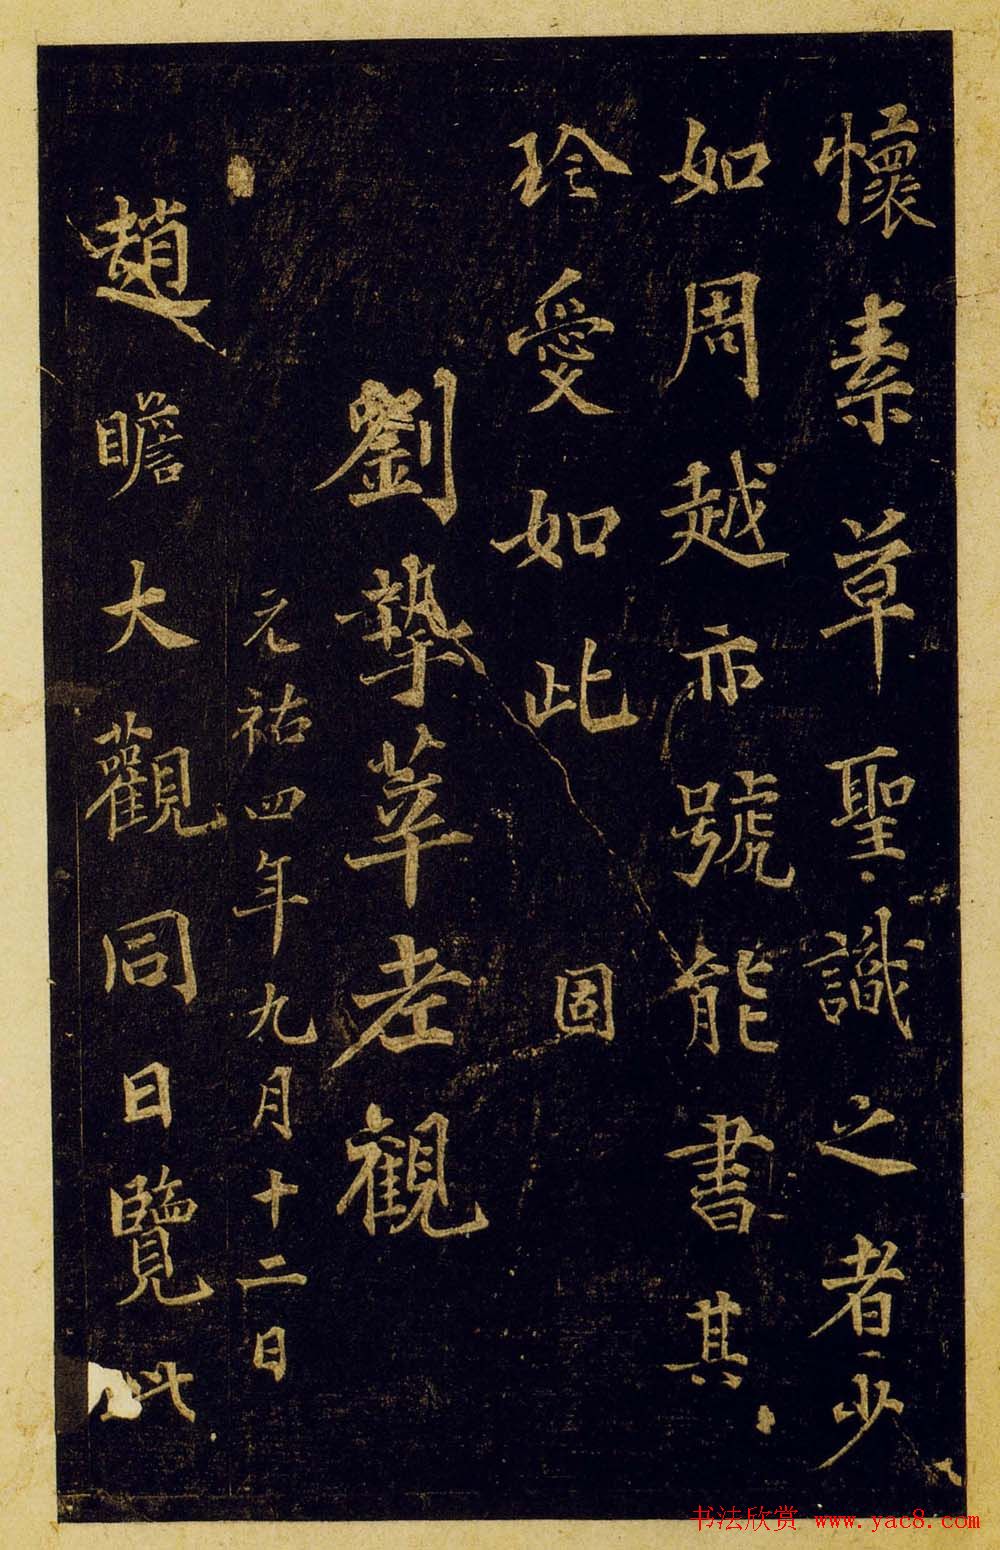 懷素草聖識之者少
如周越亦號能書其
珎愛如此 固
劉摯莘老觀
元祐四年九月十二日
趙瞻大觀同日覽此
书法欣赏 www.yac8.com